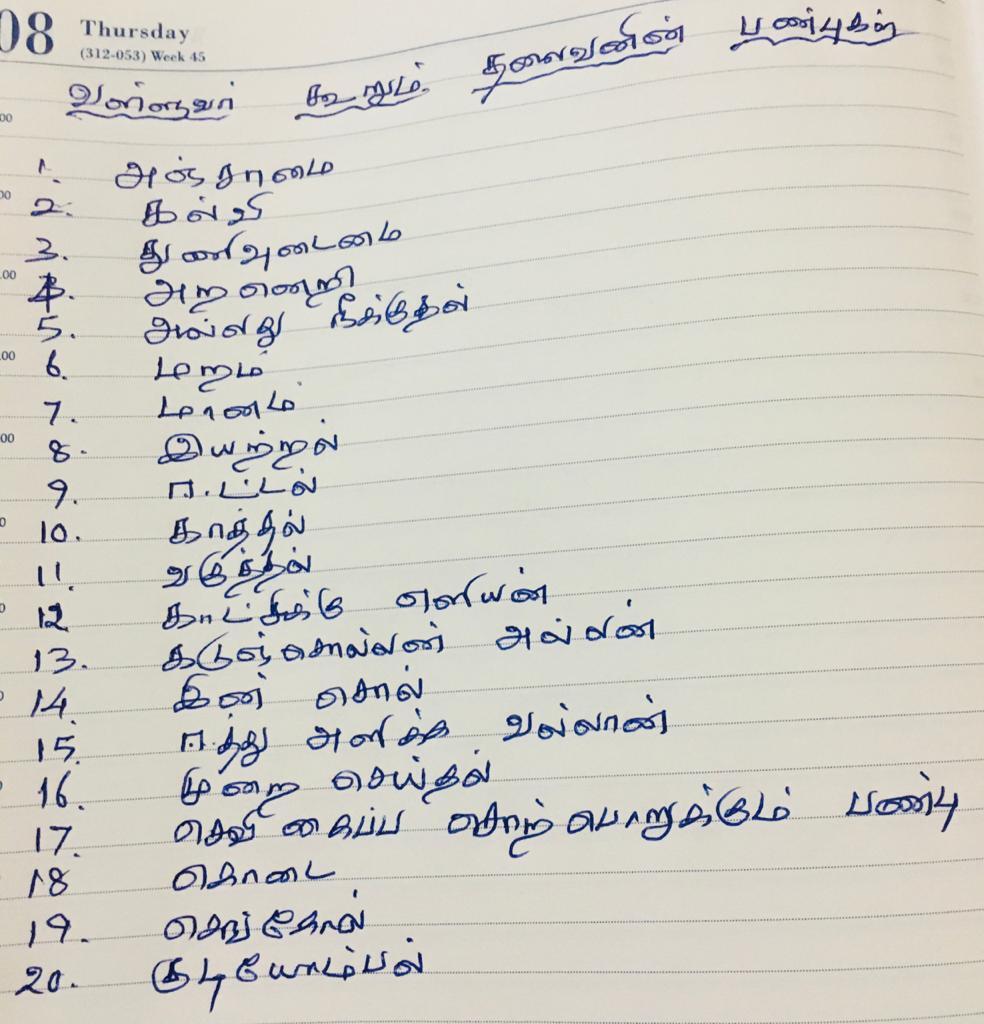 08 Thursday
(312-053) Week 45
வள்ளுவர் கூறும் தலைவனின் பண்புகள்
1. அஞ்சாமை
2. கல்வி
3. துணிவுடைமை
4. அறனெறி
5. அல்லது நீக்குதல்
6. மறம்
7. மானம்
8. இயற்றல்
9. ஈட்டல்
10. காத்தல்
11. வகுத்தல்
12 காட்சிக்கு எளியன்
13. கடுஞ்சொல்லன் அல்லன்
14. இன் சொல்
15. ஈத்து அளிக்க வல்லான்
16. முறை செய்தல்
17. செவி கைப்ப சொற் பொறுக்கும் பண்பு
18 கொடை
19. செங்கோல்
20. குடியோம்பல்